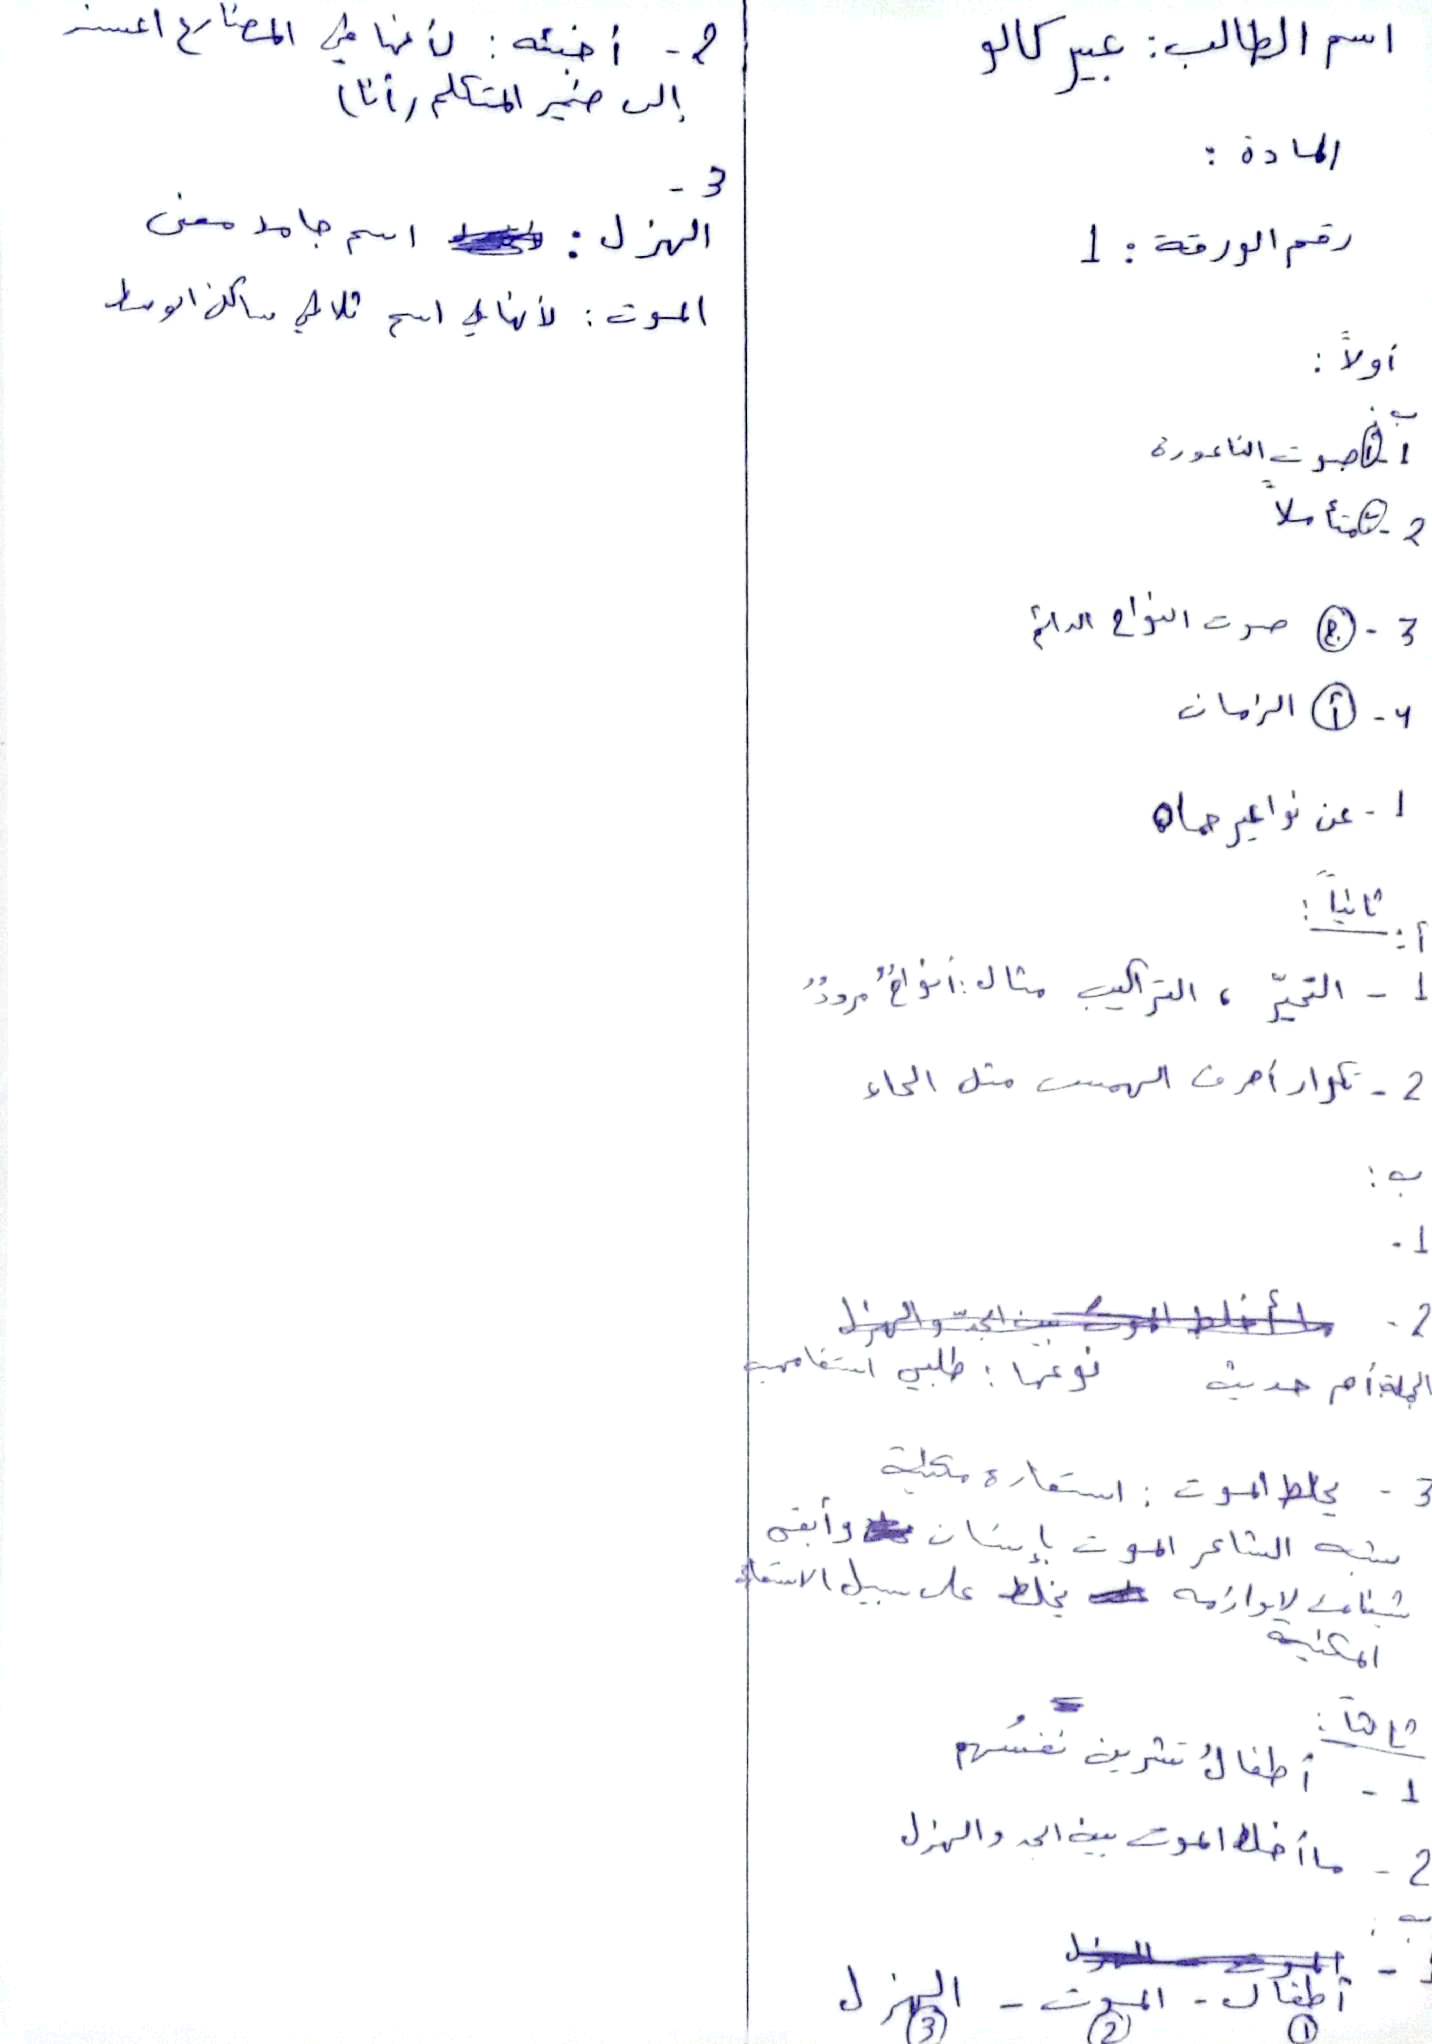 اسم الطالب: عبير كالو
المادة :
رقم الورقة : 1
أولاً :
ب
1 - أ صوت الناعورة
2 - متأملاً
3 - ج صوت النواح الدائم
4 - أ الزمان
1 - عن نواعير حماه
ثانياً :
أ :
1 - التحيّر ، التراكيب مثال : أنواحٌ مرودٌ
2 - تكرار أحرف الهمس مثل الحاء
ب :
1 -
2 - ما أخلط الموت بين الجدّ والهزل
الجملة: أم حديث نوعها : طلبي استفامهي
3 - يخلط الموت : استعارة مكنية
شبه الشاعر الموت بإنسان وأبقى
شيئا من لوازمه يخلط على سبيل الاستعارة
المكنية
ثالثاً :
1 - أطفالُ تشرين نفسُهم
2 - ما أخلط الموت بين الجد والهزل
ب :
1 - الموت الهزل
أطفال - الموت - الهزل
1 2 3
2 - أخبئه : لأنها في المضارع اسند
إلى ضمير المتكلم (أنا)
3 -
الهزل : اسم جامد معنى
الموت : لأنها اسم ثلاثي ساكن الوسط